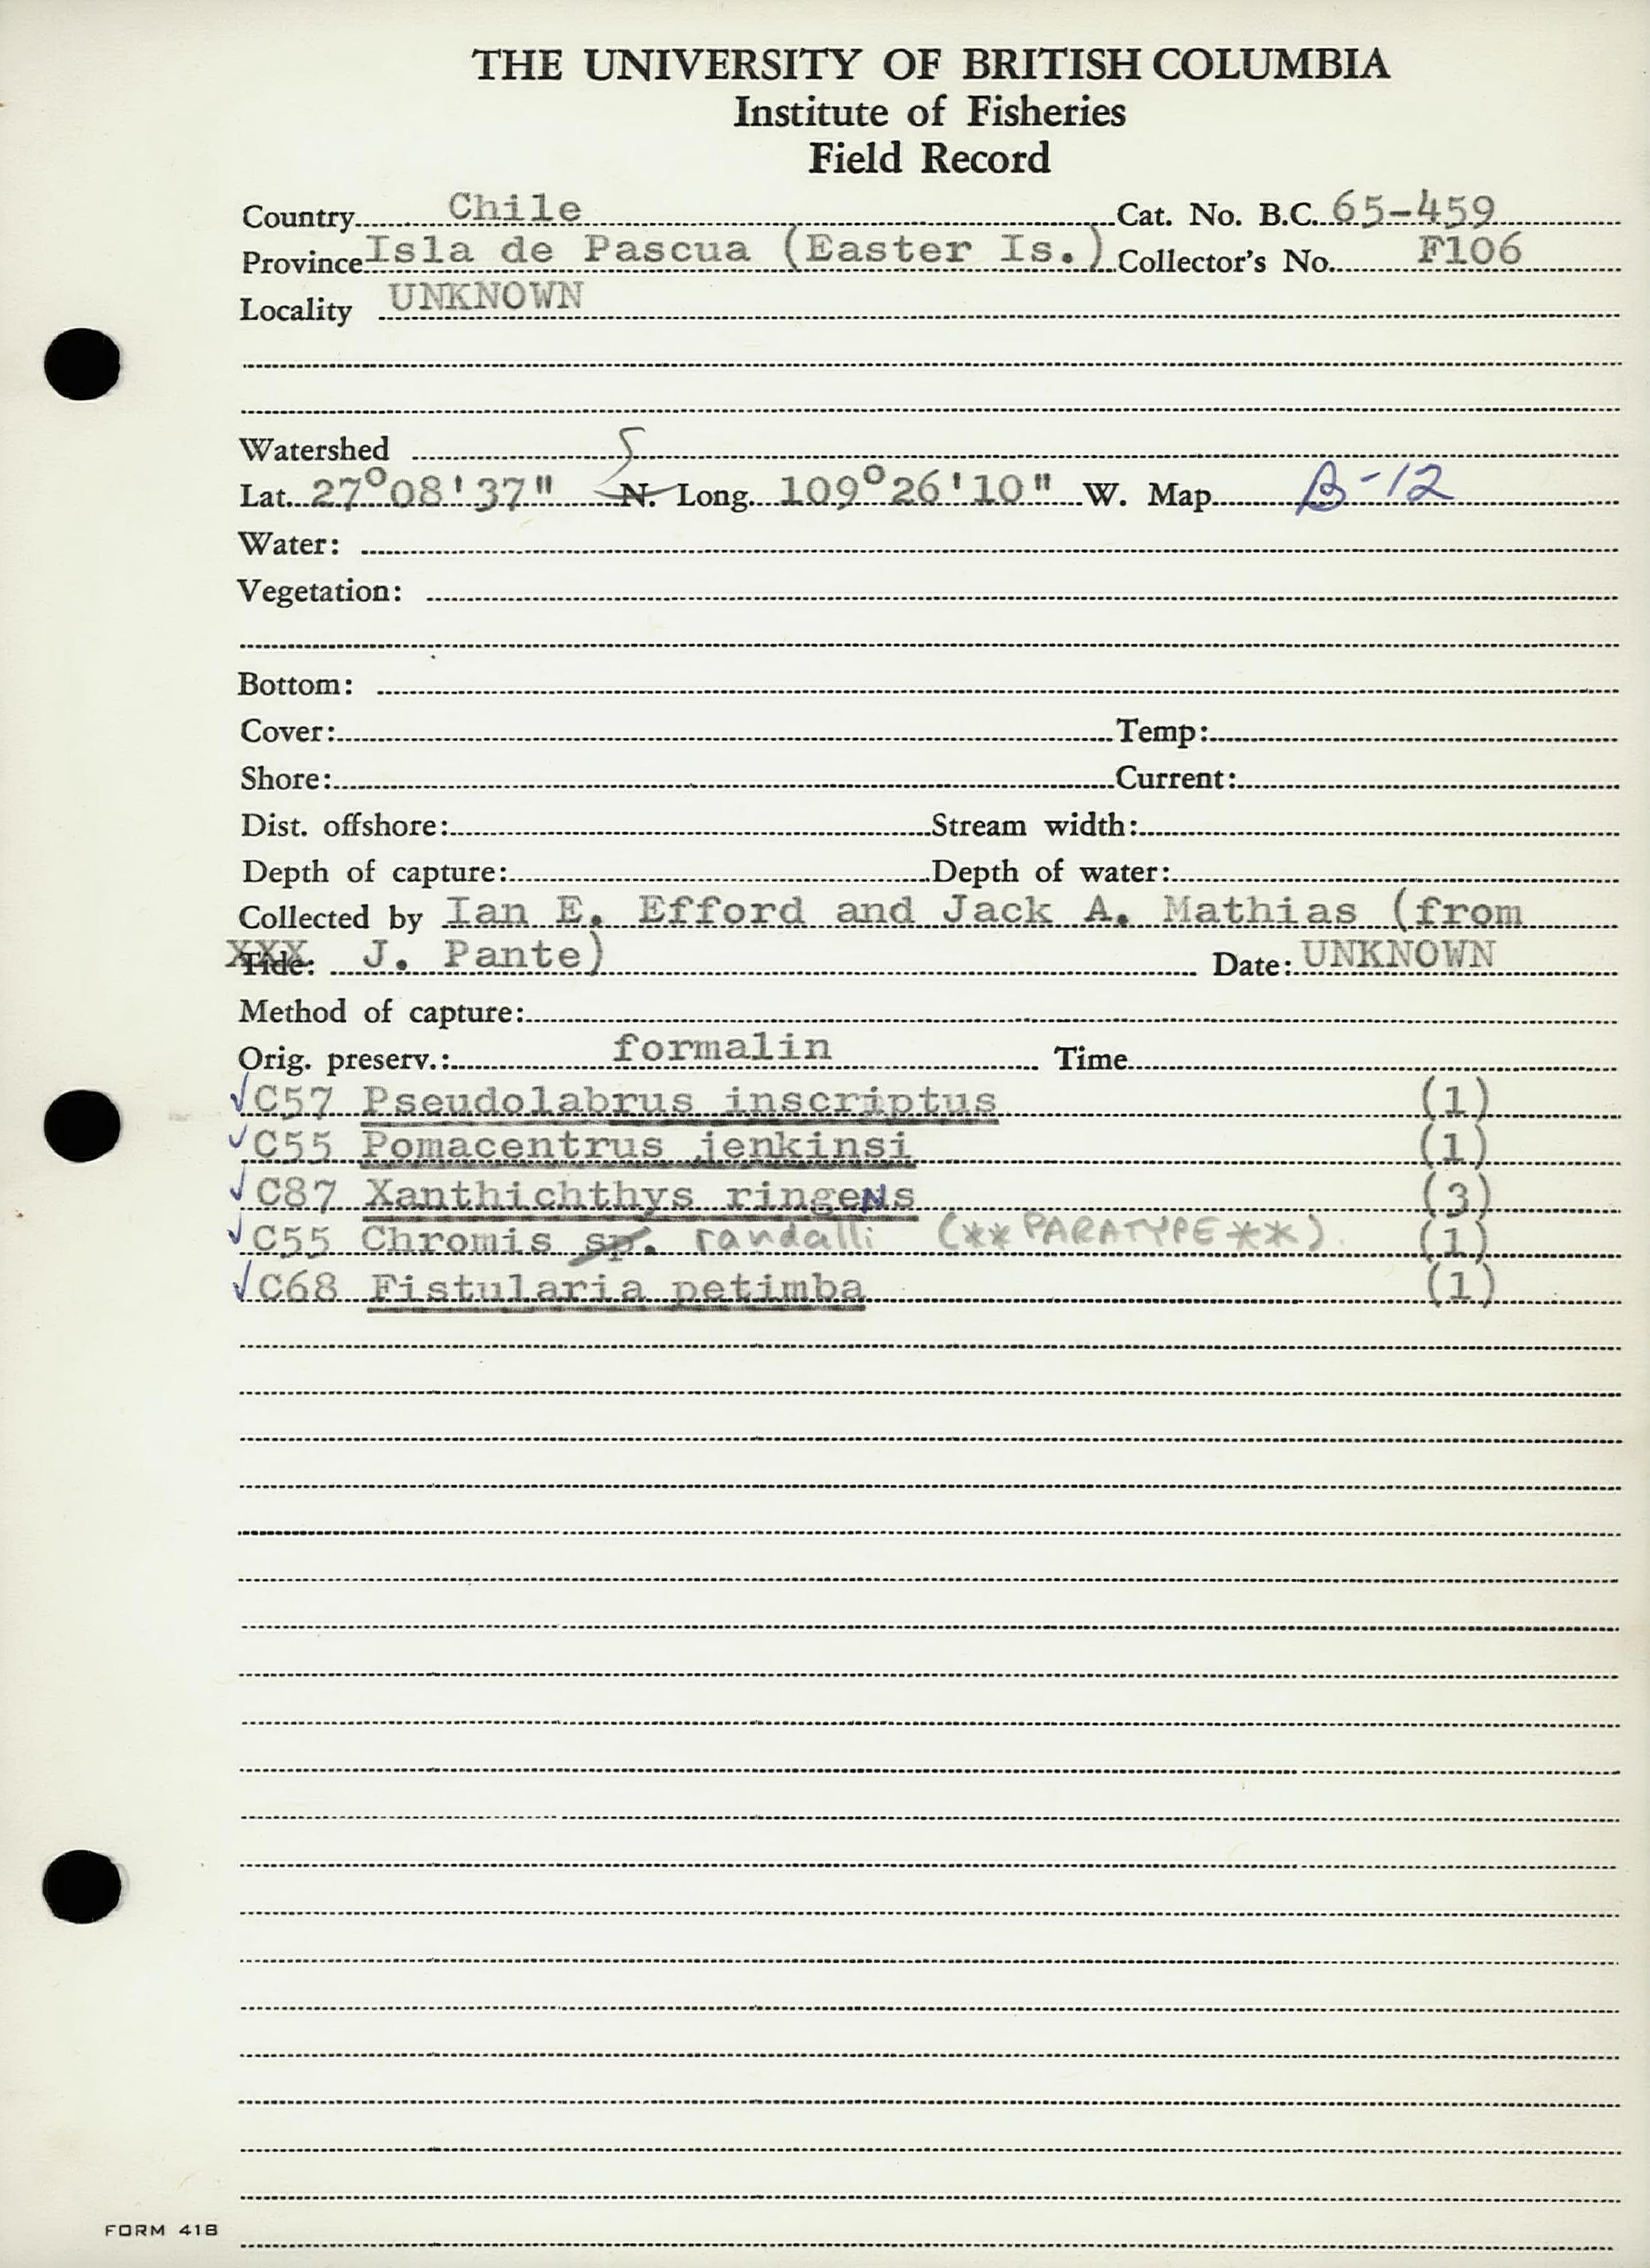 THE UNIVERSITY OF BRITISH COLUMBIA
Institute of Fisheries
Field Record
Country Chile Cat. No. B.C. 65-459
Province Isla de Pascua (Easter Is.) Collector's No. F106
Locality UNKNOWN
Watershed
Lat. 27°08'37" N. S Long. 109°26'10" W. Map B-12
Water:
Vegetation:
Bottom:
Cover: Temp:
Shore: Current:
Dist. offshore: Stream width:
Depth of capture: Depth of water:
Collected by Ian E. Efford and Jack A. Mathias (from
XXX Tide: J. Pante) Date: UNKNOWN
Method of capture:
Orig. preserv.: formalin Time
✓C57 Pseudolabrus inscriptus (1)
✓C55 Pomacentrus jenkinsi (1)
✓C87 Xanthichthys ringeNs (3)
✓C55 Chromis sp. randalli (**PARATYPE**). (1)
✓C68 Fistularia petimba (1)
FORM 418